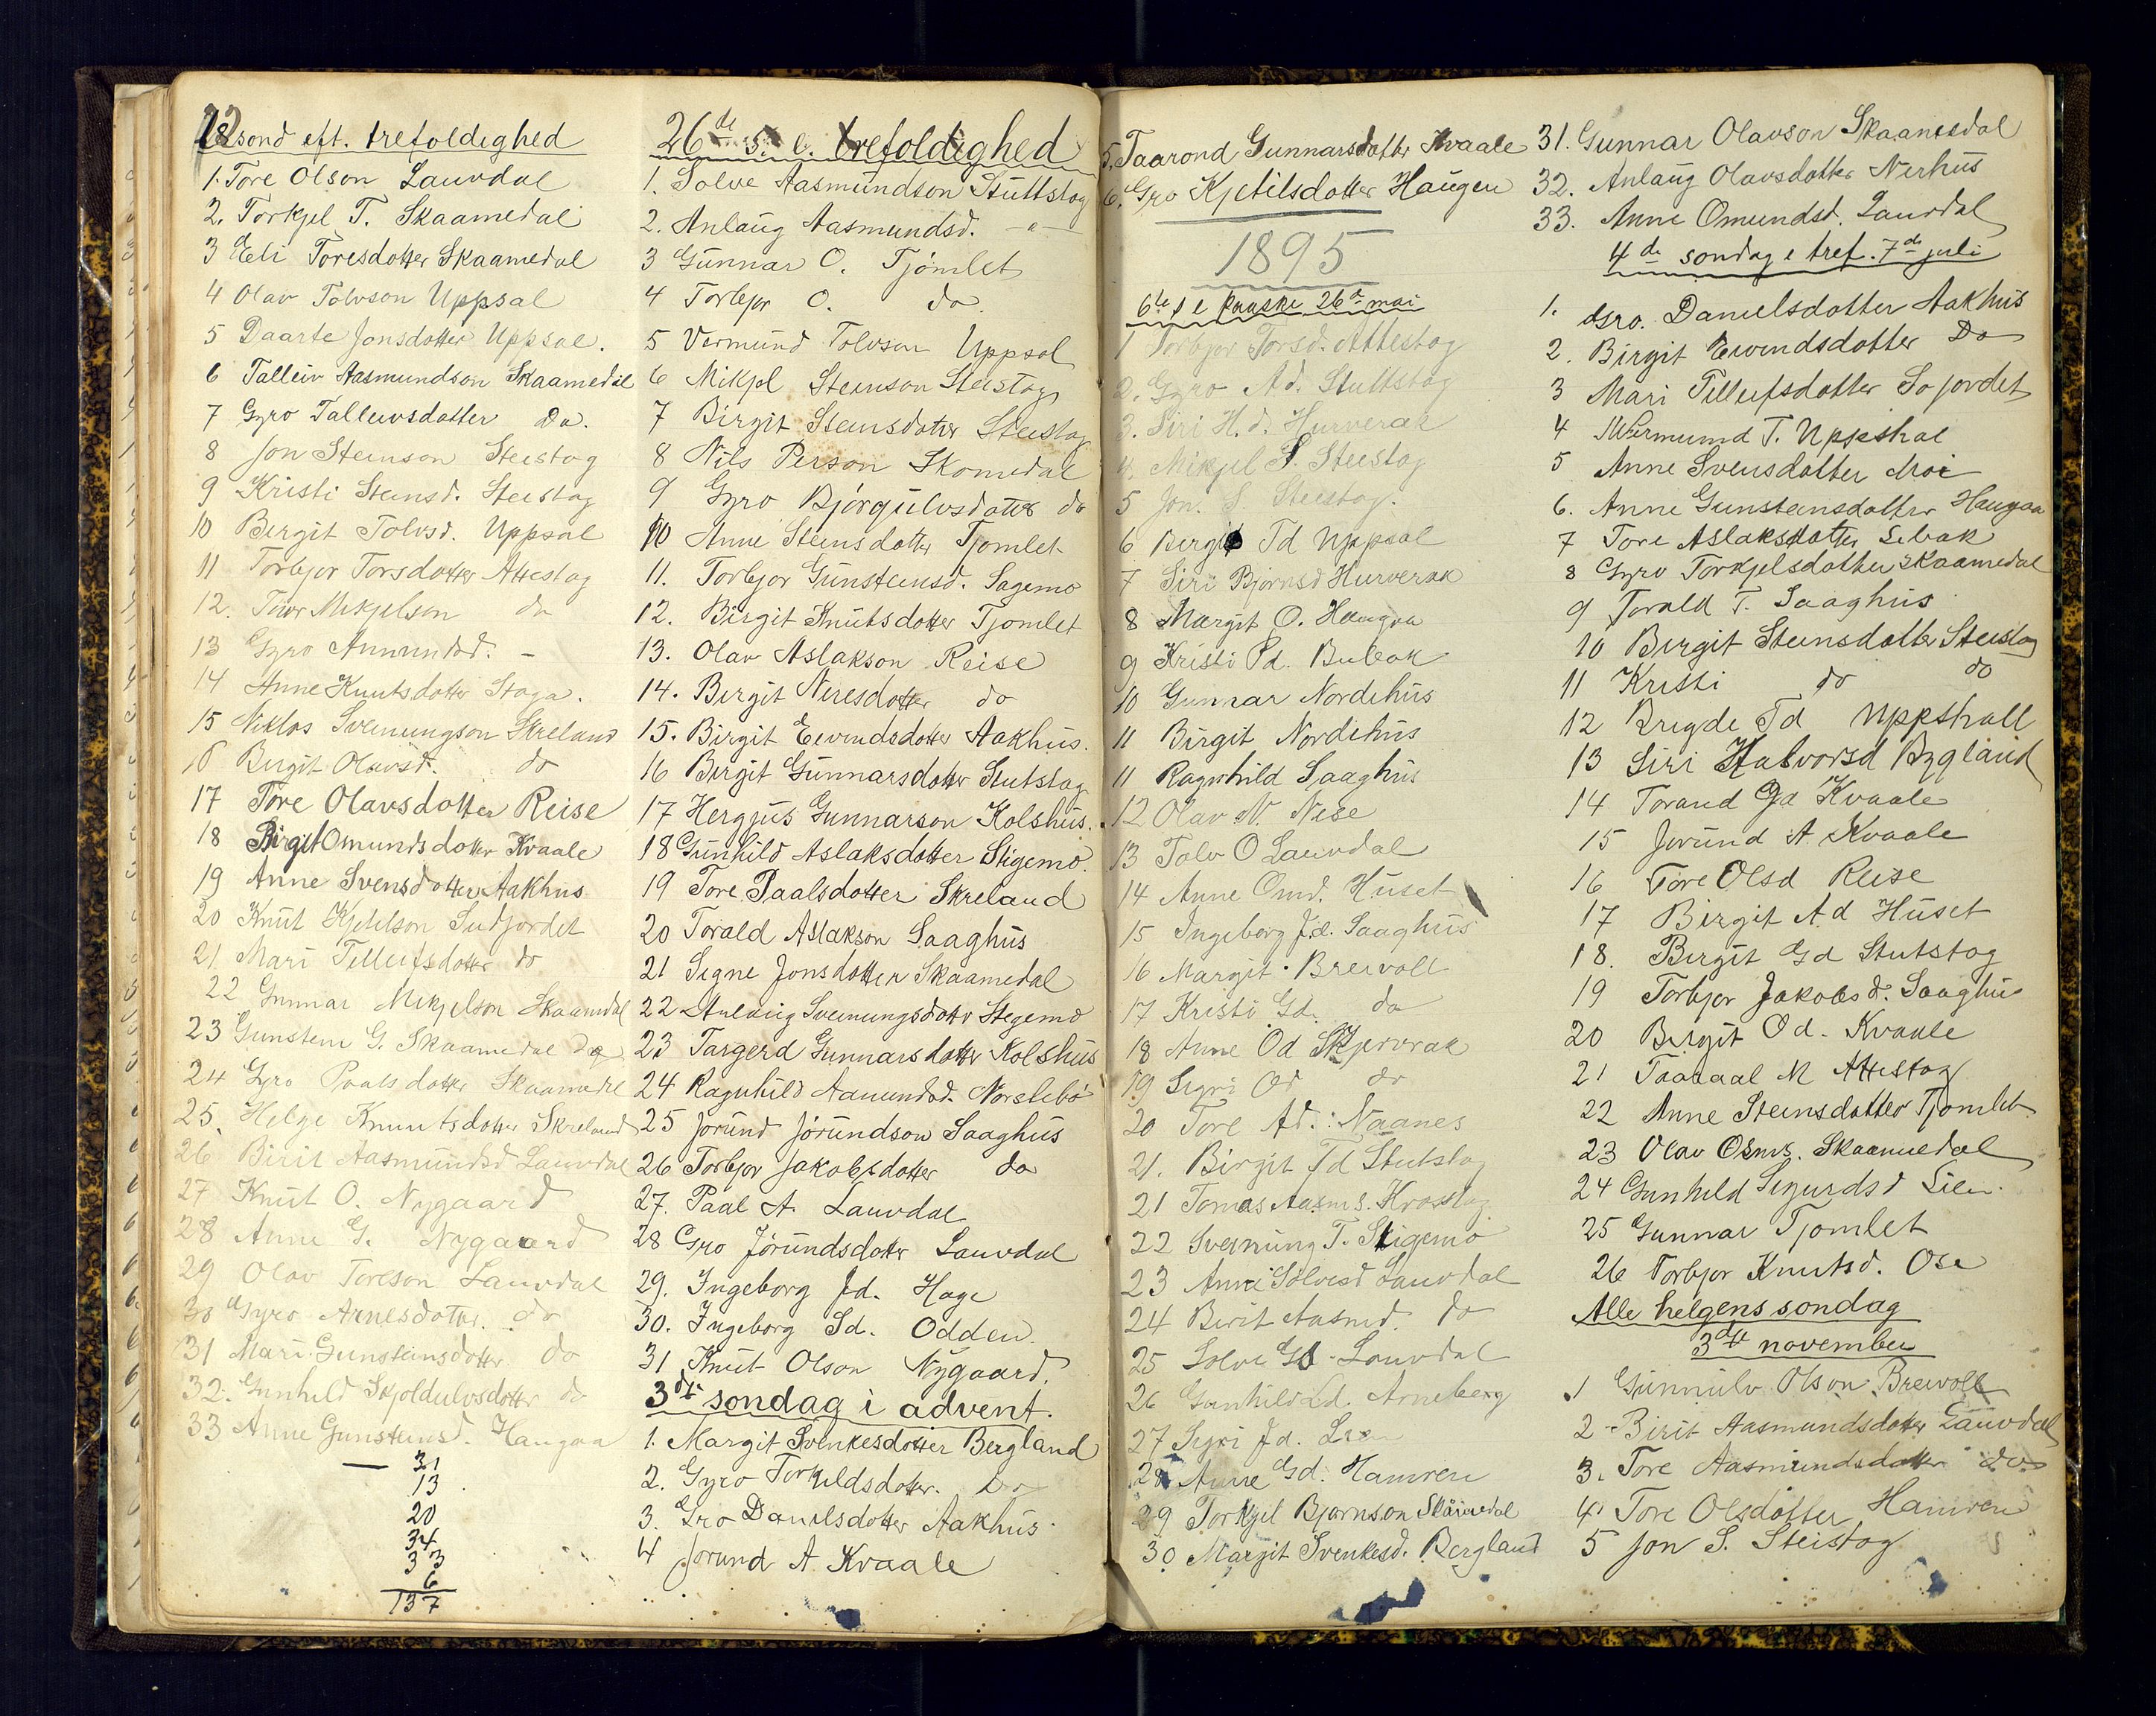 18 sond eft. trefoldighed
1. Tore Olson Lauvdal
2. Torkjel T. Skaamedal
3 Eli Toresdotter Skaamedal
4 Olav Tolvson Uppsal
5 Daarte Jonsdotter Uppsal.
6 Talleiv Aasmundson Skaamedal
7 Gyro Talleivsdatter Do.
8 Jon Steinson Steistog
9 Kristi Steinsd. Steistog
10 Birgit Tolvsd. Uppsal
11 Torbjor Torsdotter Attestog
12. Tour Mikjelson do
13 Gyro Amundsd. -
14 Anne Knutsdotter Staga.
15 Niklos Sveinungson Skreland
16 Birgit Olavsd. do
17 Tore Olavsdotter Reise
18 Birgit Omundsdotter Kvaale
19 Anne Svensdotter Aakhus
20 Knut Kjetilson Sudjordet
21 Mari Tellefsdotter do
22 Gunnar Mikjelson Skaamedal
23 Gunstein G. Skaamedal
24 Gyro Paalsdotter Skaamedal
25. Helge Knuutsdotter Skreland
26 Birit Aasmundsd Lauvdal
27 Knut O. Nygaard
28 Anne G. Nygaard
29 Olav Toreson Lauvdal
30 Gyro Arnesdotter. do
31 Mari Gunsteinsdotter do
32. Gunhild Skjoldulvsdotter do
33 Anne Gunsteinsd. Haugaa
— 31
13
20
34
33
6
137
26de s. e. trefoldighed
1. Solve Aasmundson Stuttstog
2. Anlaug Aasmundsd. —"—
3 Gunnar O. Tjomlet
4 Torbjor O. do
5 Vermund Tolvson Uppsal
6 Mikjel Steinson Steistog
7 Birgit Steinsdatter Steistog
8 Nils Person Skomedal
9 Gyro Bjørgulvsdatter do
10 Anne Steinsdotter Tjomlet
11. Torbjor Gunsteinsd. Sagemo
12. Birgit Knutsdotter Tjomlet
13. Olav Aslakson Reise
14. Birgit Neresdotter do
15. Birgit Eivindsdotter Aakhus.
16 Birgit Gunnarsdotter Stutstog
17 Herggus Gunnarson Kolshus.
18 Gunhild Aslaksdotter Stigemo.
19 Tore Paalsdotter Skreland
20 Torald Aslakson Saaghus
21 Signe Jonsdotter Skaamedal
22 Anlaug Sveinungsdotter Stegemo
23 Targerd Gunnarsdotter Kolshus
24 Ragnhild Aamundsd. Norstebø
25 Jorund Jorundson Saaghus
26 Torbjor Jakobsdotter do
27. Paal A. Lauvdal
28 Gro Jorundsdotter Lauvdal
29. Ingeborg Jd. Hage
30. Ingeborg Sd. Odden
31 Knut Olson Nygaard.
3die sondag i advent.
1. Margit Svenkesdotter Bergland
2. Gyro Torkildsdotter. Do
3. Gro Danilsdotter Aakhus
4 Jorund A Kvaale
5. Taarond Gunnarsdotter Kvaale
6. Gro Kjetilsdotter Haugen
1895
6te s e Paaske 26de mai
1 Torbjor Torsd. Attestog
2. Gyro Ad. Stuttstog
3. Siri H. d. Hurverak
4. Mikjel S. Steistog
5 Jon. S. Steistog.
6 Birgit Td Uppsal
7 Siri Bjornsd Hurverak
8 Margit O. Haugaa
9 Kristi Pd. Bubak
10 Gunnar Nordihus
11 Birgit Nordihus
11 Ragnhild Saaghus
12 Olav N. Nese
13 Tolv O Lauvdal
14 Anne Omd. Huset
15 Ingeborg Jd. Saaghus
16 Margit Breivoll
17 Kristi Gd. do
18 Anne Od Skjervrak
19 Sigri Od do
20 Tore Ad. Naanes
21. Birgit Td Stutstog
21 Tomas Aasms. Krosstog
22 Sveinung T. Stigemo
23 Anne Solvesd Lauvdal
24 Birit Aasmd. do
25 Solve Lauvdal
26 Gunhild Ld. Arneberg
27 Sigri Jd.
28 Anne Gd. Hamren
29 Torkjel Bjornson Skåmedal
30 Margit Svenkesd. Bergland
31. Gunnar Olavson Skaamedal
32. Anlaug Olavsdotter Nerhus
33. Anne Omundsd. Lauvdal
4de sondag e tref. 7de juli
1. Gro. Danielsdotter Aakhus
2. Birgit Eivindsdotter Do
3 Mari Tellefsdotter Sojordet
4 Wermund T. Uppshal
5 Anne Svensdotter Moi
6. Anne Gunsteinsdotter Haugaa
7 Tore Aslaksdotter Libak
8 Gyro Torkjelsdotter Skaamedal
9 Torald T. Saaghus
10 Birgit Steinsdotter Steistog
11 Kristi do do
12 Brigde Td Uppshall
13 Siri Halvorsd Bygland
14 Torand Gd Kvaale
15 Jorund A. Kvaale
16 Tore Olsd Reise
17 Birgit Ad Huset
18. Birgit Gd Stutstog
19 Torbjor Jakobsd. Saaghus
20 Birgit Od. Kvaale
21 Taaraal M Attestog
22 Anne Steinsdotter Tjomlet
23 Olav Osms. Skaamedal
24 Gunhild Sigurdsd Lien.
25 Gunnar Tjomlet
26 Torbjor Knutsd. Ose
Alle helgens sondag
3die november
1 Gunnulv Olson Breivoll
2 - Birit Aasmundsdotter Lauvdal
3. Tore Aasmundsdotter do
4 Tore Olsdotter Hamren
5 Jon S. Steistog